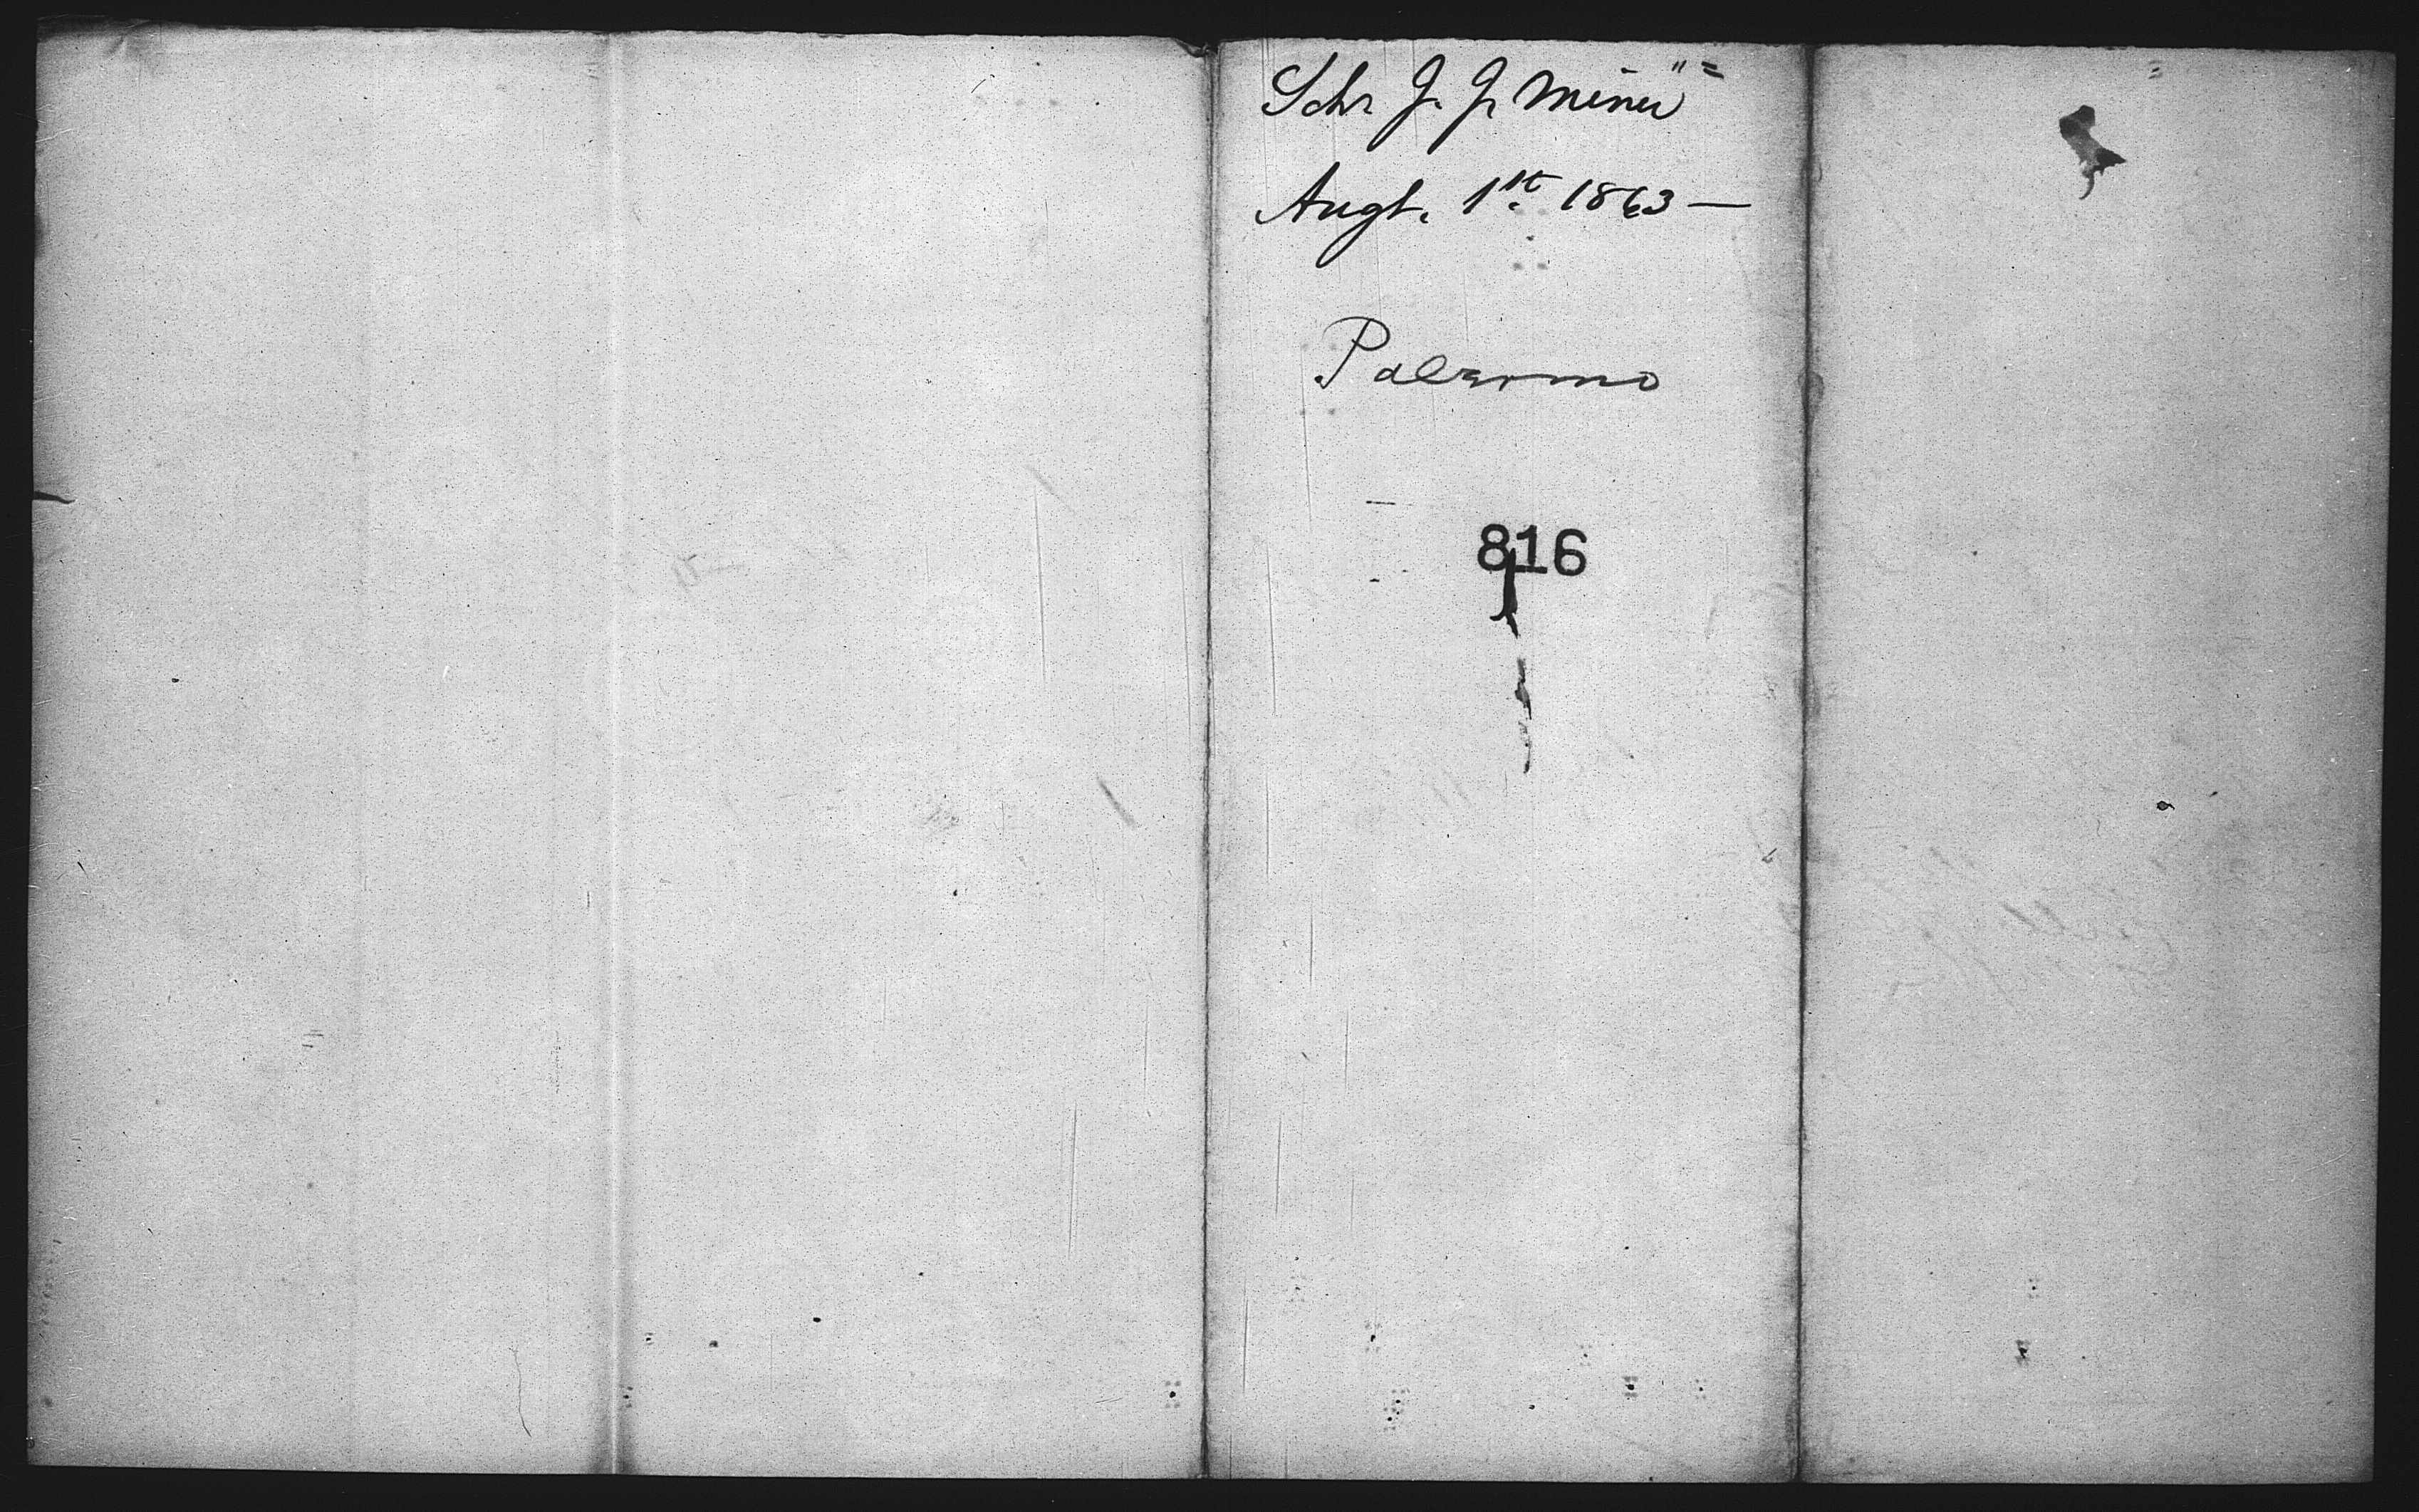 Schr J. J. Miner" =
Augt. 1st. 1863 —
Palermo
816